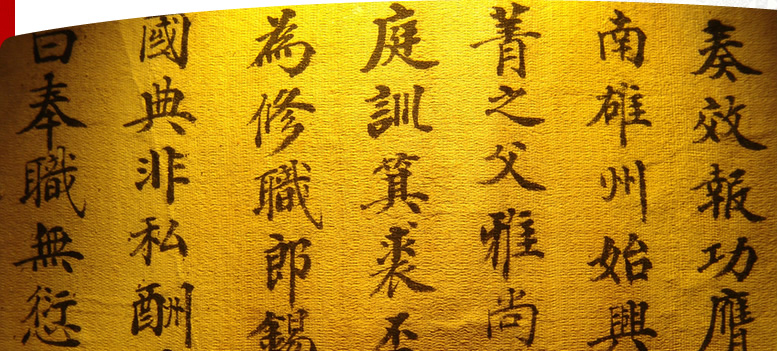 奏效報功膺
南雄州始興
菁之父雅尚
庭訓箕裘丕
為修職郎錫
國典非私酬
曰奉職無愆